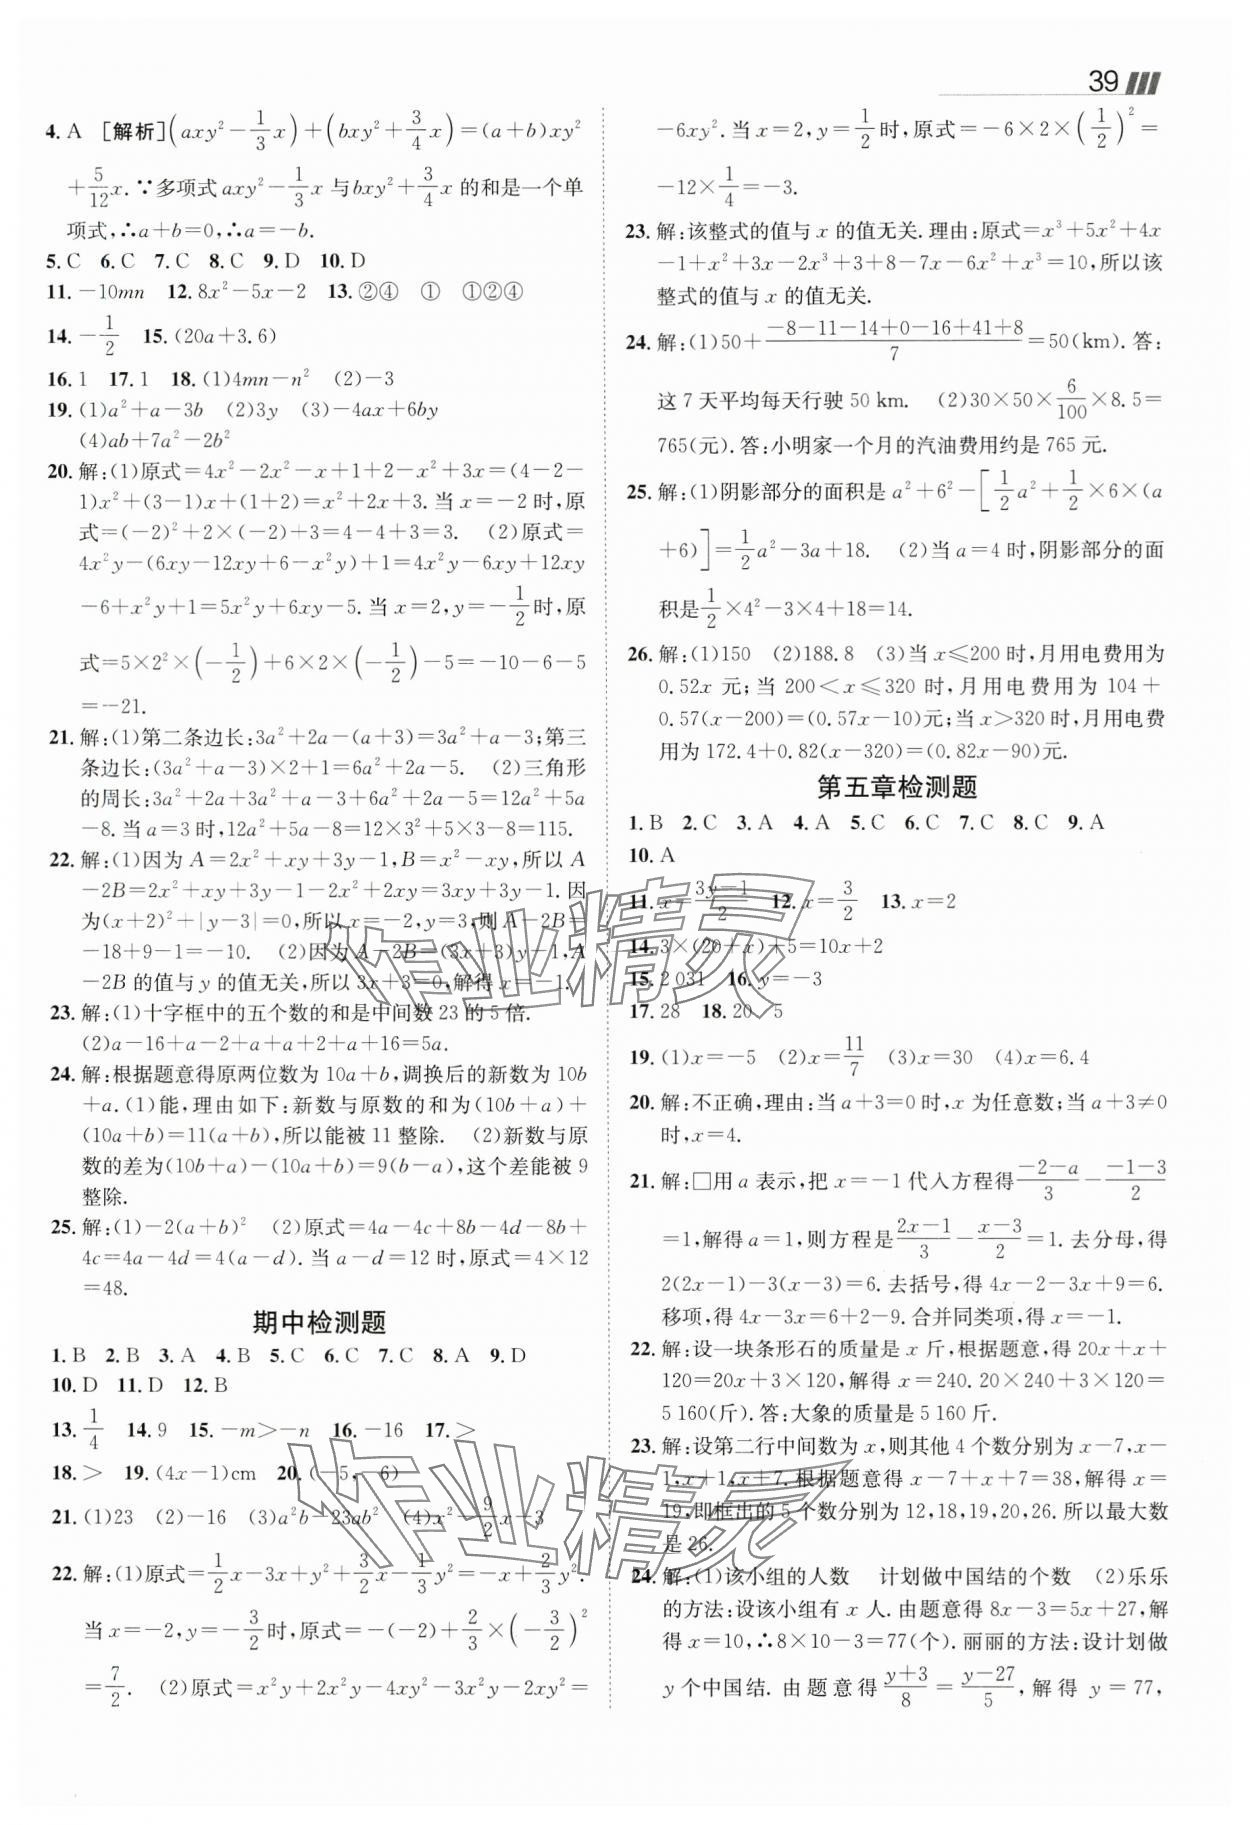 39
4. A [解析](axy²－1/3x)＋(bxy²＋3/4x)＝(a＋b)xy²
＋5/12x.∵多项式axy²－1/3x与bxy²＋3/4x的和是一个单
项式,∴a＋b＝0,∴a＝－b.
5. C 6. C 7. C 8. C 9. D 10. D
11. －10mn 12. 8x²－5x－2 13. ②④ ① ①②④
14. －1/2 15. (20a＋3.6)
16. 1 17. 1 18. (1)4mn－n² (2)－3
19. (1)a²＋a－3b (2)3y (3)－4ax＋6by
(4)ab＋7a²－2b²
20. 解:(1)原式＝4x²－2x²－x＋1＋2－x²＋3x＝(4－2－
1)x²＋(3－1)x＋(1＋2)＝x²＋2x＋3.当x＝－2时,原
式＝(－2)²＋2×(－2)＋3＝4－4＋3＝3. (2)原式＝
4x²y－(6xy－12xy＋6－x²y)＋1＝4x²y－6xy＋12xy
－6＋x²y＋1＝5x²y＋6xy－5.当x＝2,y＝－1/2时,原
式＝5×2²×(－1/2)＋6×2×(－1/2)－5＝－10－6－5
＝－21.
21. 解:(1)第二条边长:3a²＋2a－(a＋3)＝3a²＋a－3;第三
条边长:(3a²＋a－3)×2＋1＝6a²＋2a－5. (2)三角形
的周长:3a²＋2a＋3a²＋a－3＋6a²＋2a－5＝12a²＋5a
－8.当a＝3时,12a²＋5a－8＝12×3²＋5×3－8＝115.
22. 解:(1)因为A＝2x²＋xy＋3y－1,B＝x²－xy,所以A
－2B＝2x²＋xy＋3y－1－2x²＋2xy＝3xy＋3y－1.因
为(x＋2)²＋|y－3|＝0,所以x＝－2,y＝3,则A－2B＝
－18＋9－1＝－10. (2)因为A－2B＝(3x＋3)y－1,A
－2B的值与y的值无关,所以3x＋3＝0,解得x＝－1.
23. 解:(1)十字框中的五个数的和是中间数23的5倍.
(2)a－16＋a－2＋a＋a＋2＋a＋16＝5a.
24. 解:根据题意得原两位数为10a＋b,调换后的新数为10b
＋a.(1)能,理由如下:新数与原数的和为(10b＋a)＋
(10a＋b)＝11(a＋b),所以能被11整除. (2)新数与原
数的差为(10b＋a)－(10a＋b)＝9(b－a),这个差能被9
整除.
25. 解:(1)－2(a＋b)² (2)原式＝4a－4c＋8b－4d－8b＋
4c＝4a－4d＝4(a－d).当a－d＝12时,原式＝4×12
＝48.
期中检测题
1. B 2. B 3. A 4. B 5. C 6. C 7. C 8. A 9. D
10. D 11. D 12. B
13. 1/4 14. 9 15. －m＞－n 16. －16 17. ＞
18. ＞ 19. (4x－1)cm 20. (－5,－6)
21. (1)23 (2)－16 (3)a²b－23ab² (4)x²－9/2x－3
22. 解:(1)原式＝1/2x－3x＋y²＋3/2x－1/3y²＝－x＋2/3y².
当x＝－2,y＝－3/2时,原式＝－(－2)＋2/3×(－3/2)²
＝7/2. (2)原式＝x²y＋2x²y－4xy²－3x²y－2xy²＝
－6xy².当x＝2,y＝1/2时,原式＝－6×2×(1/2)²＝
－12×1/4＝－3.
23. 解:该整式的值与x的值无关.理由:原式＝x³＋5x²＋4x
－1＋x²＋3x－2x³＋3＋8－7x－6x²＋x³＝10,所以该
整式的值与x的值无关.
24. 解:(1)50＋(－8－11－14＋0－16＋41＋8)/7＝50(km).答:
这7天平均每天行驶50 km. (2)30×50×6/100×8.5＝
765(元).答:小明家一个月的汽油费用约是765元.
25. 解:(1)阴影部分的面积是a²＋6²－[1/2a²＋1/2×6×(a
＋6)]＝1/2a²－3a＋18. (2)当a＝4时,阴影部分的面
积是1/2×4²－3×4＋18＝14.
26. 解:(1)150 (2)188.8 (3)当x≤200时,月用电费用为
0.52x元;当200＜x≤320时,月用电费用为104＋
0.57(x－200)＝(0.57x－10)元;当x＞320时,月用电费
用为172.4＋0.82(x－320)＝(0.82x－90)元.
第五章检测题
1. B 2. C 3. A 4. A 5. C 6. C 7. C 8. C 9. A
10. A
11. x＝(3y－1)/2 12. x＝3/2 13. x＝2
14. 3×(20＋x)＋5＝10x＋2
15. 2 031 16. y＝－3
17. 28 18. 20 5
19. (1)x＝－5 (2)x＝11/7 (3)x＝30 (4)x＝6.4
20. 解:不正确,理由:当a＋3＝0时,x为任意数;当a＋3≠0
时,x＝4.
21. 解:□用a表示,把x＝－1代入方程得(－2－a)/3－(－1－3)/2
＝1,解得a＝1,则方程是(2x－1)/3－(x－3)/2＝1.去分母,得
2(2x－1)－3(x－3)＝6.去括号,得4x－2－3x＋9＝6.
移项,得4x－3x＝6＋2－9.合并同类项,得x＝－1.
22. 解:设一块条形石的质量是x斤,根据题意,得20x＋x＋
120＝20x＋3×120,解得x＝240.20×240＋3×120＝
5 160(斤).答:大象的质量是5 160斤.
23. 解:设第二行中间数为x,则其他4个数分别为x－7,x－
1,x＋1,x＋7.根据题意得x－7＋x＋7＝38,解得x＝
19,即框出的5个数分别为12,18,19,20,26.所以最大数
是26.
24. 解:(1)该小组的人数 计划做中国结的个数 (2)乐乐
的方法:设该小组有x人.由题意得8x－3＝5x＋27,解
得x＝10,∴8×10－3＝77(个).丽丽的方法:设计划做
y个中国结.由题意得(y＋3)/8＝(y－27)/5,解得y＝77,
作业精灵
作业精灵